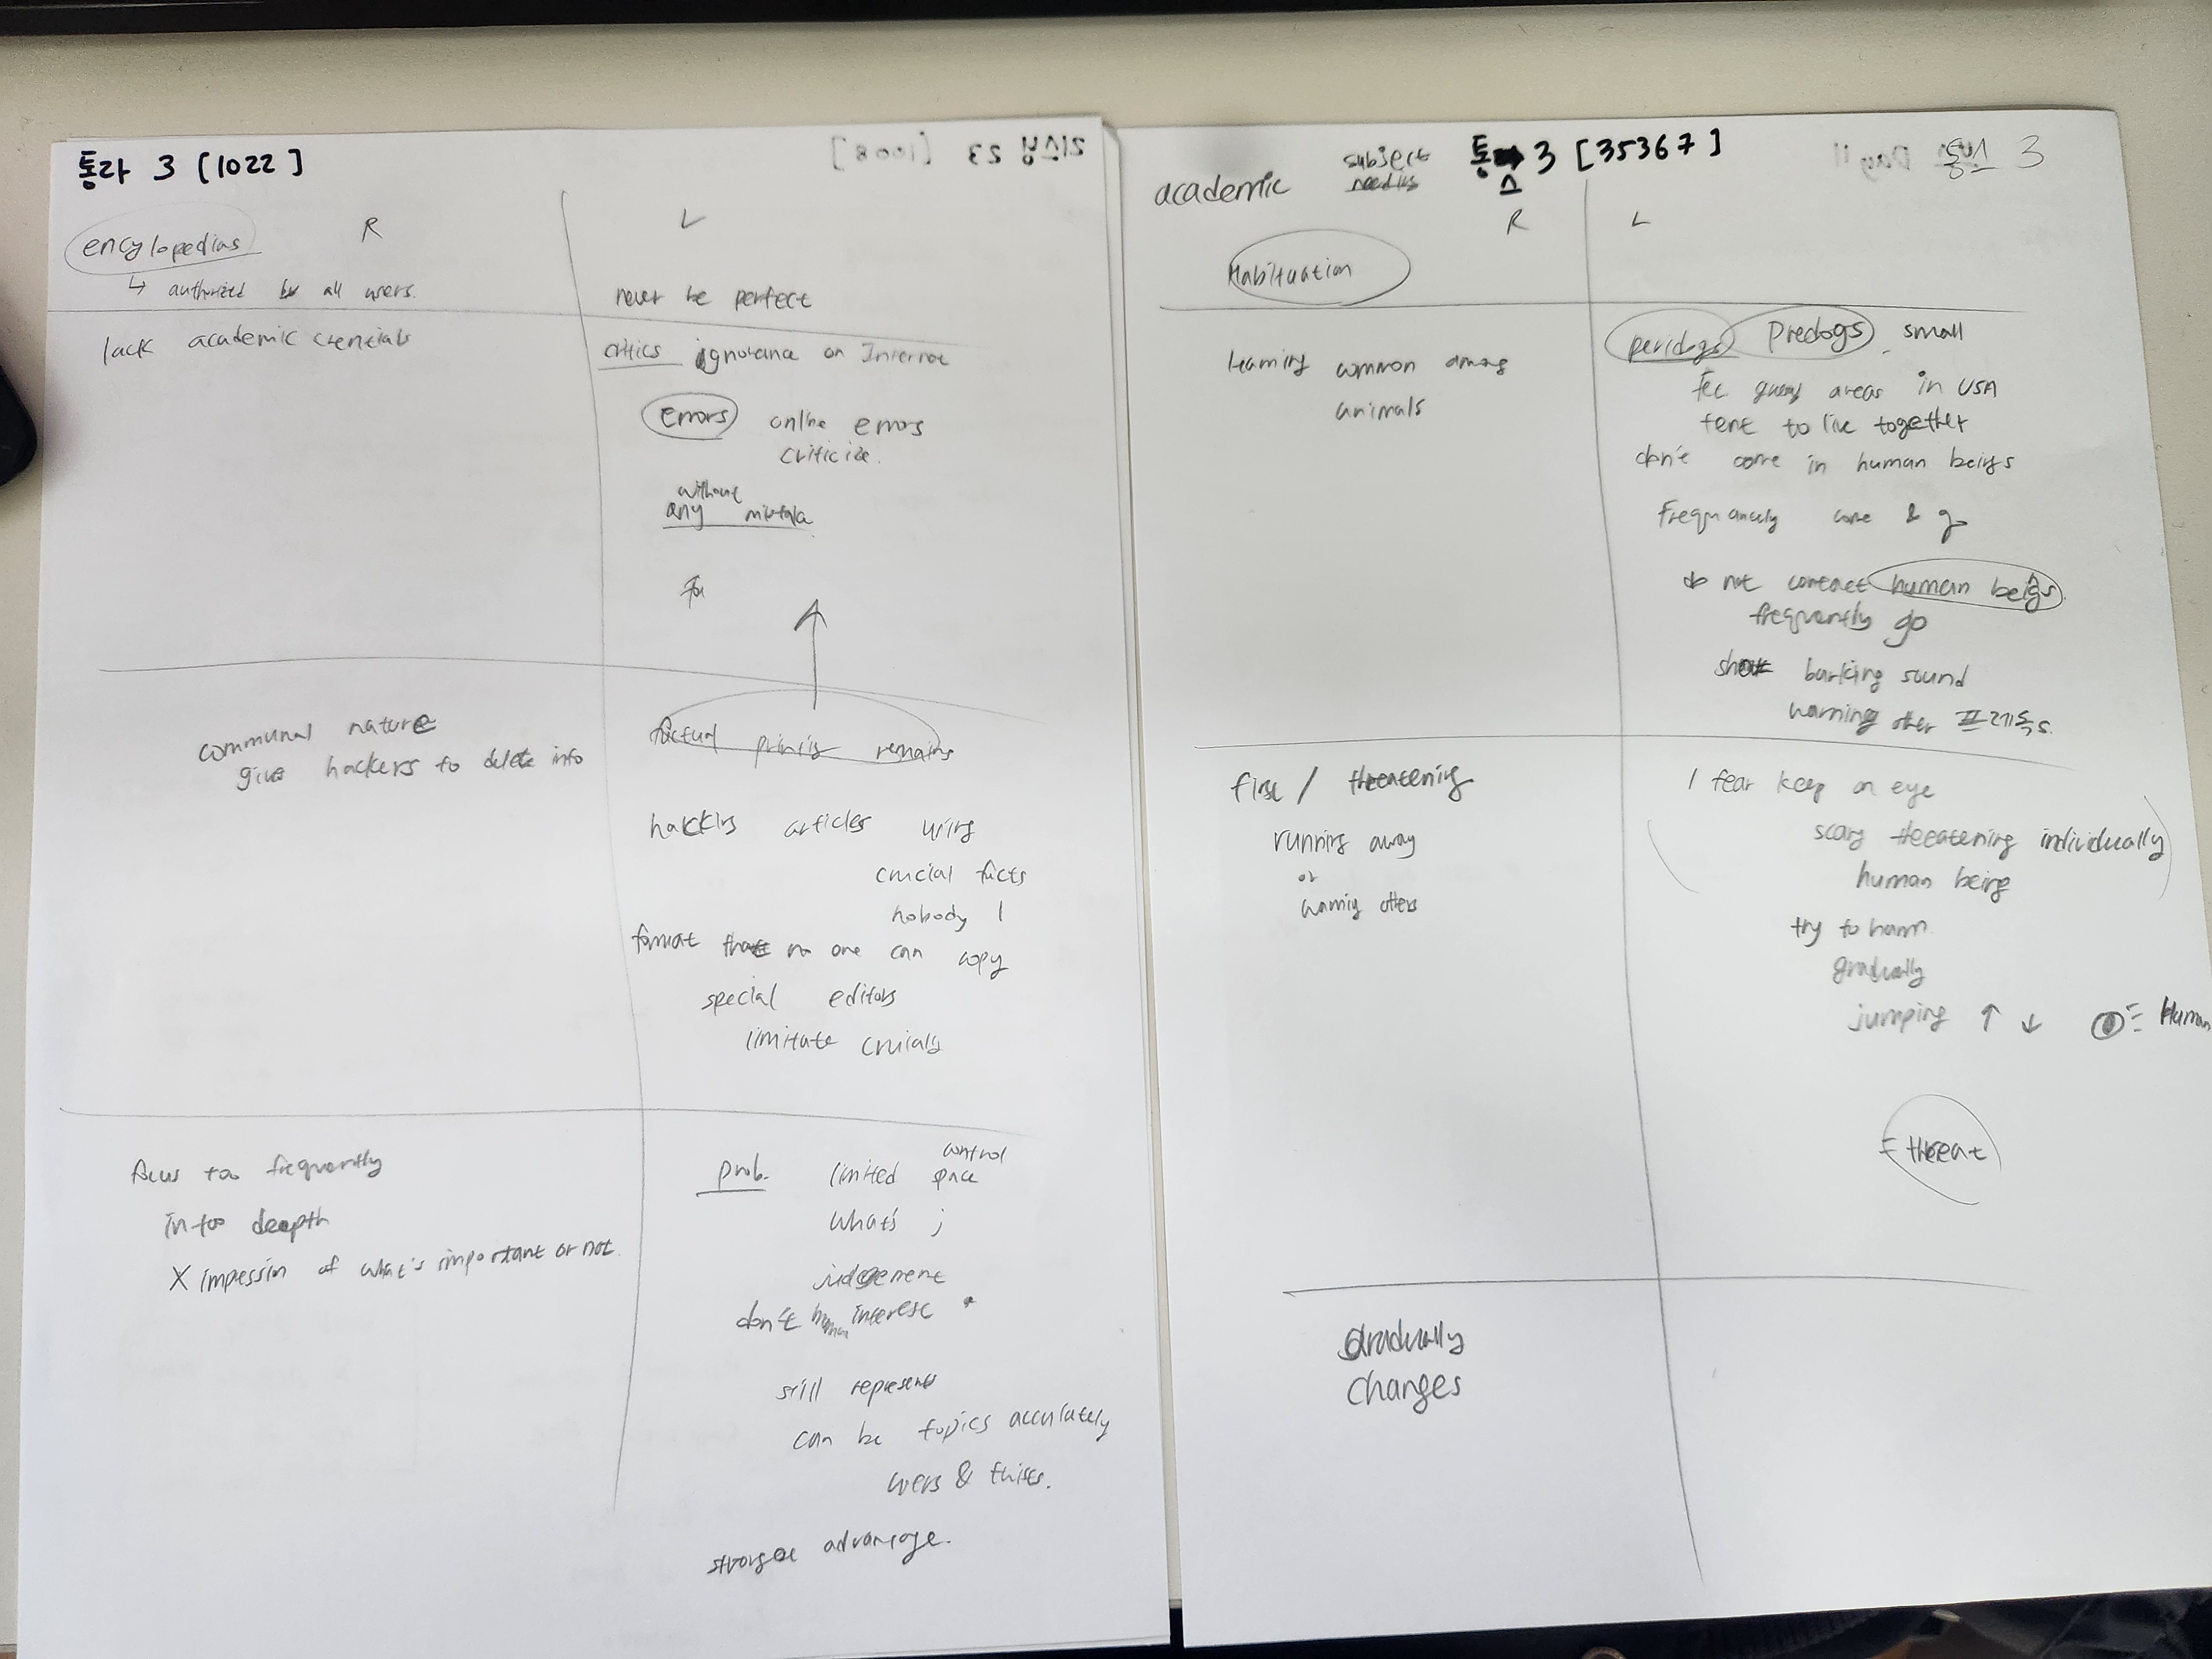 통라 3 [1022]
R
L
encylopedias
↳ authorized by all users.
never be perfect
lack academic crentials
critics ignorance on Internet
Errors online errors
criticize.
without
any
communal nature
give hackers to delete info
factual remains
articles using
crucial facts
nobody
format that no one can copy
special editors
limitate
focus too frequently
in too deepth
X impression of what's important or not.
control
prob. limited
what's
judgement
don't human interest
still represents
can be topics accurately
users &
advantage.
academic subject
통스 3 [35367]
통스 3
R
L
Habituation
learning common among
animals
peridogs Predogs small
areas in USA
tent to live together
don't come in human beings
Frequancely come & go
do not contact human beigs
frequently go
barking sound
warning other 프레디독s.
first / threatening
running away
or
warning others
I fear keep an eye
scary threatening individually
human being
try to harm
gradually
jumping ↑ ↓ = Human
= threat
Gradually
changes